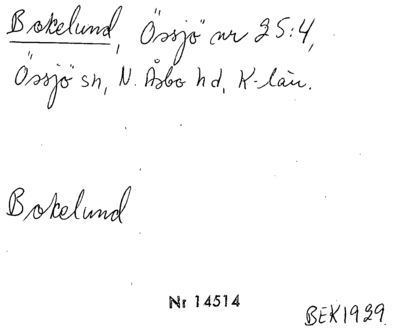 Bokelund, Össjö nr 25:4,
Össjö sn, N. Åsbo hd, K-län.
Bokelund
Nr 14514
BEK1929